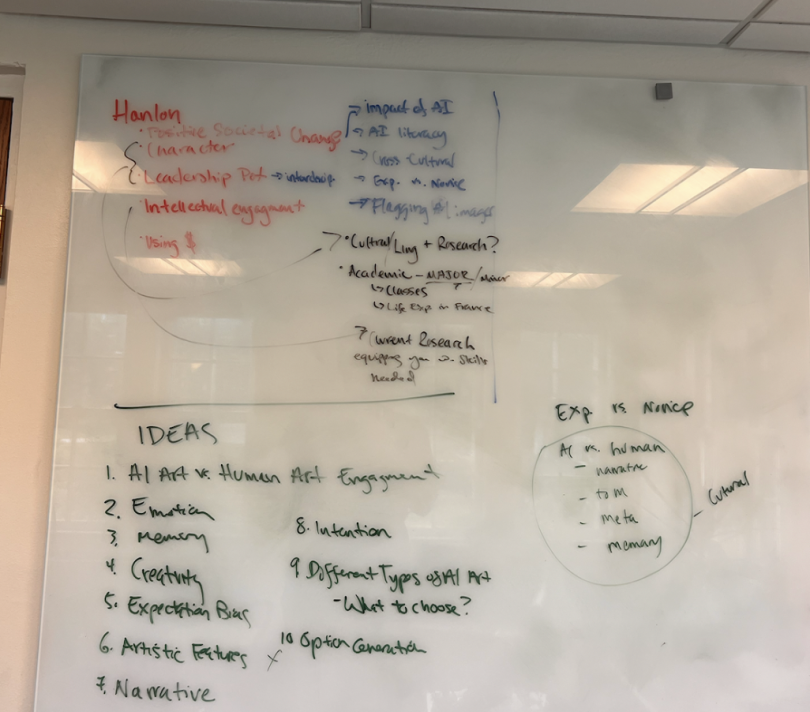 Hanlon
• Positive Societal Change
• Character
• Leadership Pot → internship
• Intellectual engagment
• Using $
→ impact of AI
→ AI literacy
→ Cross-Cultural
→ Exp. vs. Novice
→ Flagging AI images
• Cultral/Ling + Research?
• Academic - MAJOR/Minor
↳ Classes
↳ Life Exp in France
Current Research
equipping you w. skills
needed
IDEAS
1. AI Art vs. Human Art Engagment
2. Emotion
3. Memory
4. Creativity
5. Expectation Bias
6. Artistic Features
7. Narrative
8. Intention
9 Different Types of AI Art
- What to choose?
10 Option Generation
Exp. vs. Novice
AI vs. human
- narrative
- toM
- meta
- memory
- Cultural